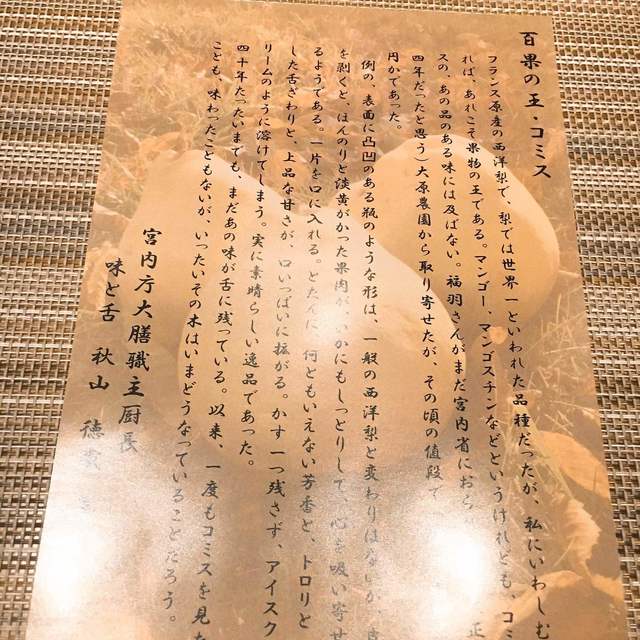 百果の王・コミス
フランス原産の西洋梨で、梨では世界一といわれた品種だったが、私にいわしむ
れば、あれこそ果物の王である。マンゴー、マンゴスチンなどというけれども、コミ
スの、あの品のある味には及ばない。福羽さんがまだ宮内省におら 正
四年だったと思う)大原農園から取り寄せたが、その頃の値段で
円かであった。
例の、表面に凸凹のある瓶のような形は、一般の西洋梨と変わりはないが、皮
を剥くと、ほんのりと淡黄がかった果肉が、いかにもしっとりして、心を吸い寄せ
るようである。一片を口に入れる。とたんに、何ともいえない芳香と、トロリと
した舌ざわりと、上品な甘さが、口いっぱいに拡がる。かす一つ残さず、アイスク
リームのように溶けてしまう。実に素晴らしい逸品であった。
四十年たったいまでも、まだあの味が舌に残っている。以来、一度もコミスを見た
ことも、味わったこともないが、いったいその木はいまどうなっていることだろう。
宮内庁大膳職主厨長
味と舌 秋山 徳蔵